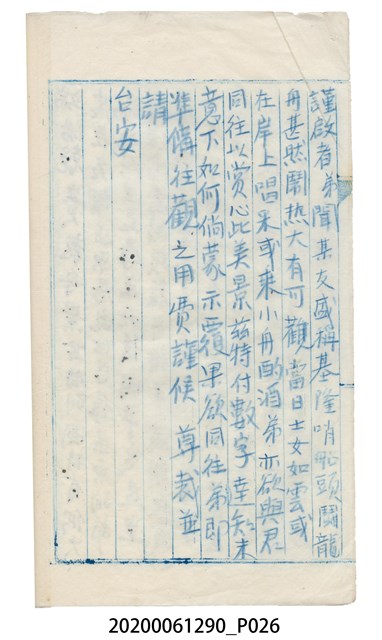 謹啟者弟聞某友盛稱基隆哨船頭鬪龍
舟甚然鬧熱大有可觀當日士女如雲或
在岸上唱采或乘小舟酌酒弟亦欲與君
同往以賞心此美景茲特付數字達知未
意下如何倘蒙示覆果欲同往弟即
準備往觀之用費謹候尊裁並
請
台安
20200061290_P026